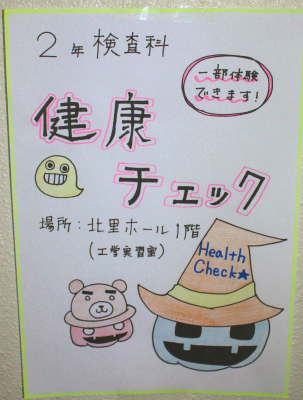 2年 検査科
一部体験
できます!
健康
チェック
場所:北里ホール1階
(工学実習室)
Health
Check★